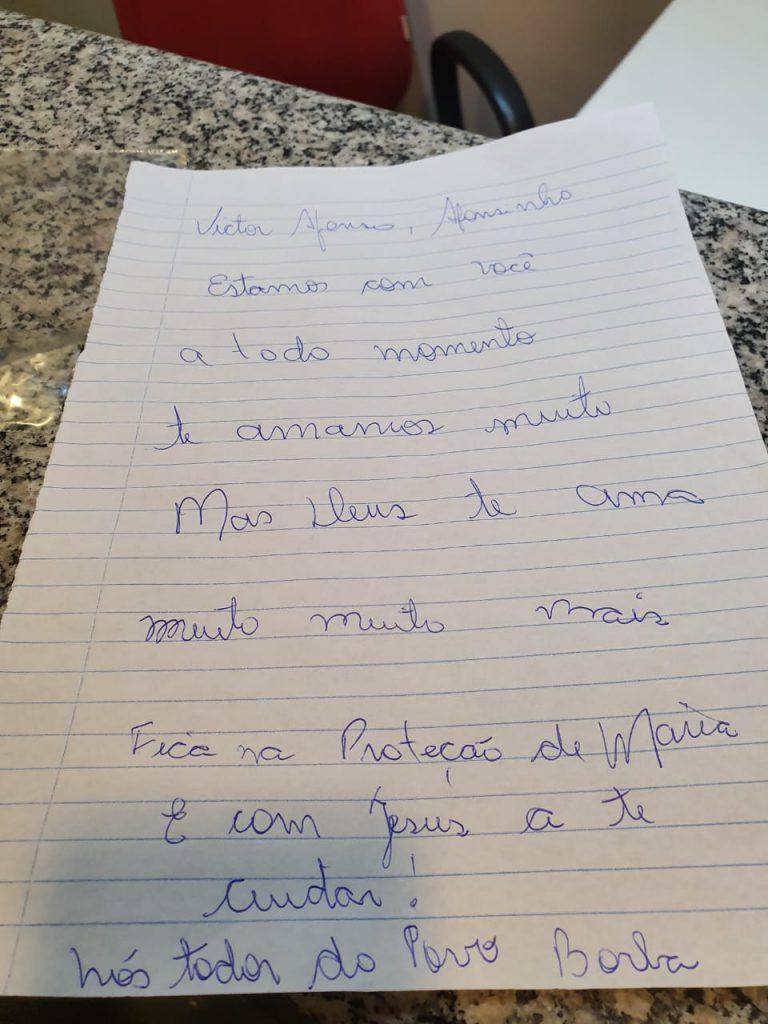 Victor Afonso, Afonsinho
Estamos com você
a todo momento
te amamos muito
Mas Deus te ama
muito muito mais
Fica na Proteção de Maria
E com Jesus a te
cuidar!
Nós todos do Povo Borba